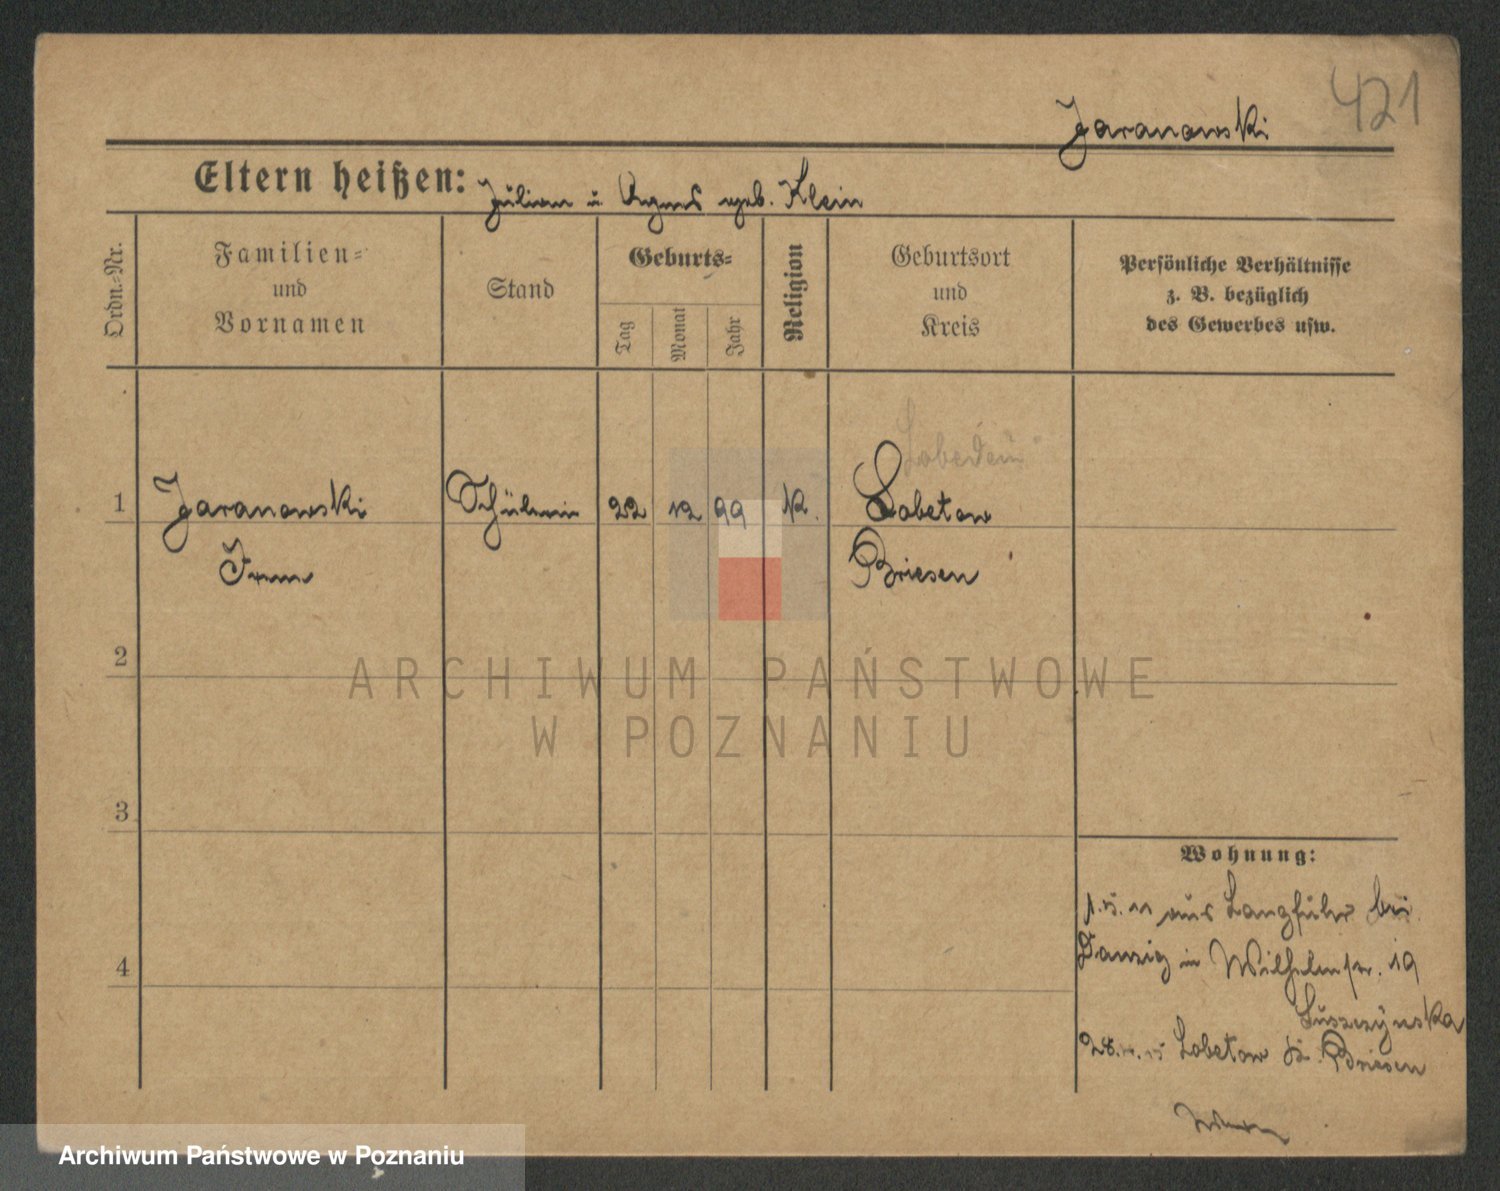 421
Jaranowski
Eltern heißen: Julian u Agnes geb. Klein
Ordn.-Nr.
Familien-
und
Vornamen
Stand
Geburts-
Tag
Monat
Jahr
Religion
Geburtsort
und
Kreis
Persönliche Verhältnisse
z. B. bezüglich
des Gewerbes usw.
Lobedau
1 Jaranowski Schülerin 22 12 99 K. Lobetow
Briesen
2
ARCHIWUM PAŃSTWOWE
W POZNANIU
3
Wohnung:
aus Langfuhr bei
4
Danzig in Wilhelmstr. 19
Luszczynska
Lobetow Briesen
Archiwum Państwowe w Poznaniu